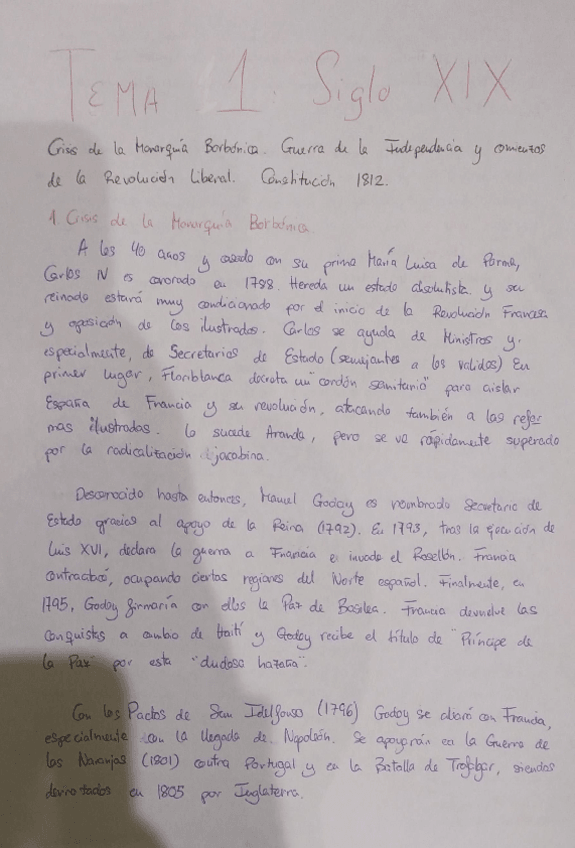 TEMA 1. Siglo XIX
Crisis de la Monarquía Borbónica. Guerra de la Independencia y comienzos
de la Revolución Liberal. Constitución 1812.
1. Crisis de la Monarquía Borbónica.
A los 40 años y casado con su prima María Luisa de Parma,
Carlos IV es coronado en 1788. Hereda un estado absolutista y su
reinado estará muy condicionado por el inicio de la Revolución Francesa
y oposición de los ilustrados. Carlos se ayuda de Ministros y,
especialmente, de Secretarios de Estado (semejantes a los validos) En
primer lugar, Floriblanca decreta un "cordón sanitario" para aislar
España de Francia y su revolución, atacando también a las refor
mas ilustradas. Lo sucede Aranda, pero se ve rápidamente superado
por la radicalización jacobina.
Desconocido hasta entonces, Manuel Godoy es nombrado Secretario de
Estado gracias al apoyo de la Reina (1792). En 1793, tras la ejecución de
Luis XVI, declara la guerra a Francia e invade el Rosellón. Francia
contraatacó, ocupando ciertas regiones del Norte español. Finalmente, en
1795, Godoy firmaría con ellos la Paz de Basilea. Francia devuelve las
conquistas a cambio de Haití y Godoy recibe el título de "Príncipe de
la Paz" por esta "dudosa hazaña".
Con los Pactos de San Idelfonso (1796) Godoy se aliará con Francia,
especialmente con la llegada de Napoleón. Se apoyarán en la Guerra de
las Naranjas (1801) contra Portugal y en la Batalla de Trafalgar, siendos
derrotados en 1805 por Inglaterra.